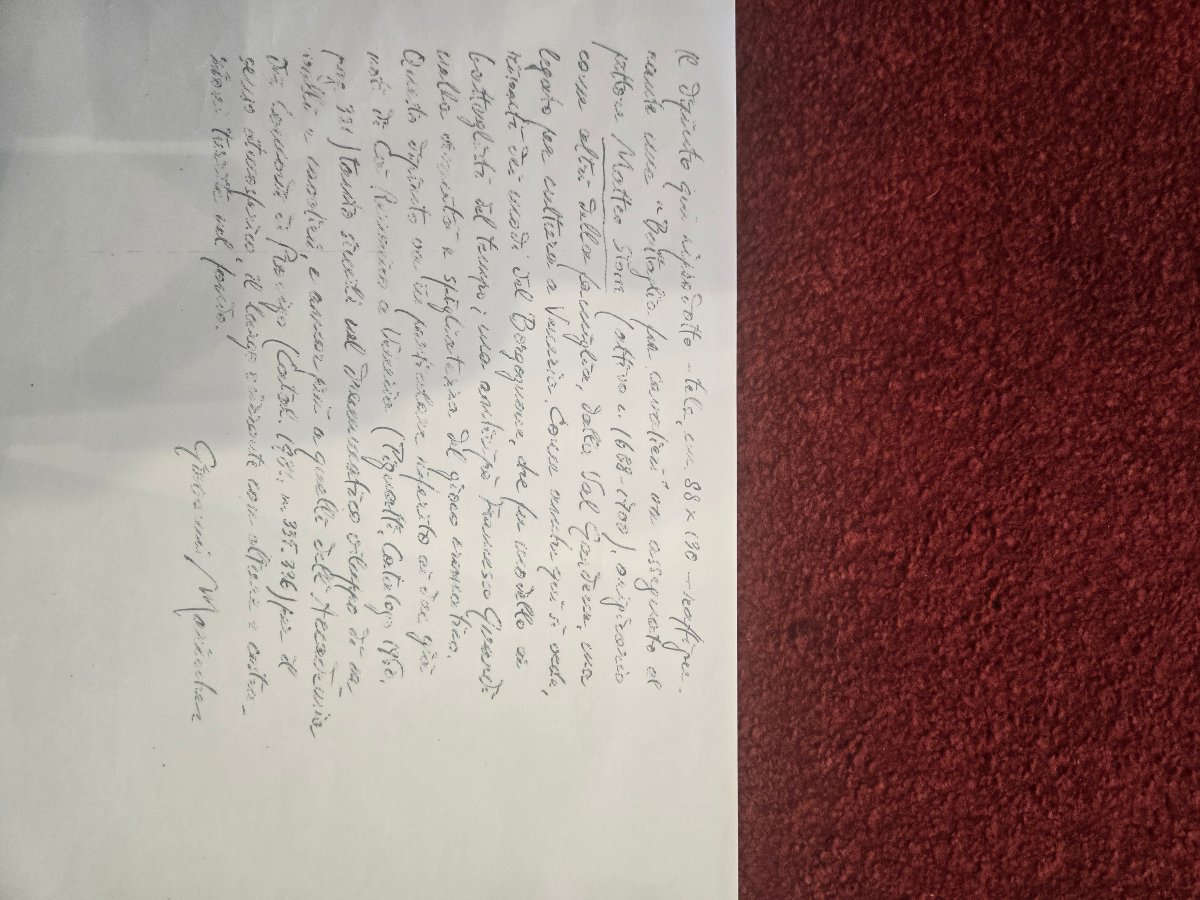 Il dipinto qui riprodotto - tela, cm. 88 x 130 - raffigu-
rante una "Battaglia fra cavalieri" va assegnato al
pittore Matteo Stom (attivo c. 1668-1700), originario
come altri della famiglia, dalla Val Gardena, ma
legato per cultura a Venezia. Come anche qui si vede,
risentì dei modi del Borgognone, che fu modello ai
battaglisti del tempo; ma anticipò Francesco Guardi
nella e spigliatezza del gioco cromatico.
Questo dipinto va in particolare riferito ai due già
noti di Ca' Rezzonico a Venezia (Pignatti, Catalogo 1960,
pag. ) tanto simili nel drammatico viluppo di ca-
valli e cavalieri, e ancor più a quelli dell'Accademia
dei Concordi di Rovigo (Catal. n. 335-336) per il
senso atmosferico, il lampeggiante con alture e
turrita nel fondo.
Giovanni